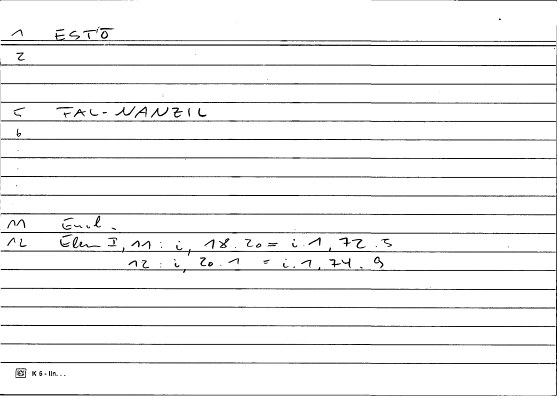 1 ESTŌ
2
5 FAL-NANZIL
6
11 Eucl.
12 Elem I, 11 : i, 18.20 = i.1, 72.5
12 : i, 20.1 = i.1, 74.9
K 6 - lin...